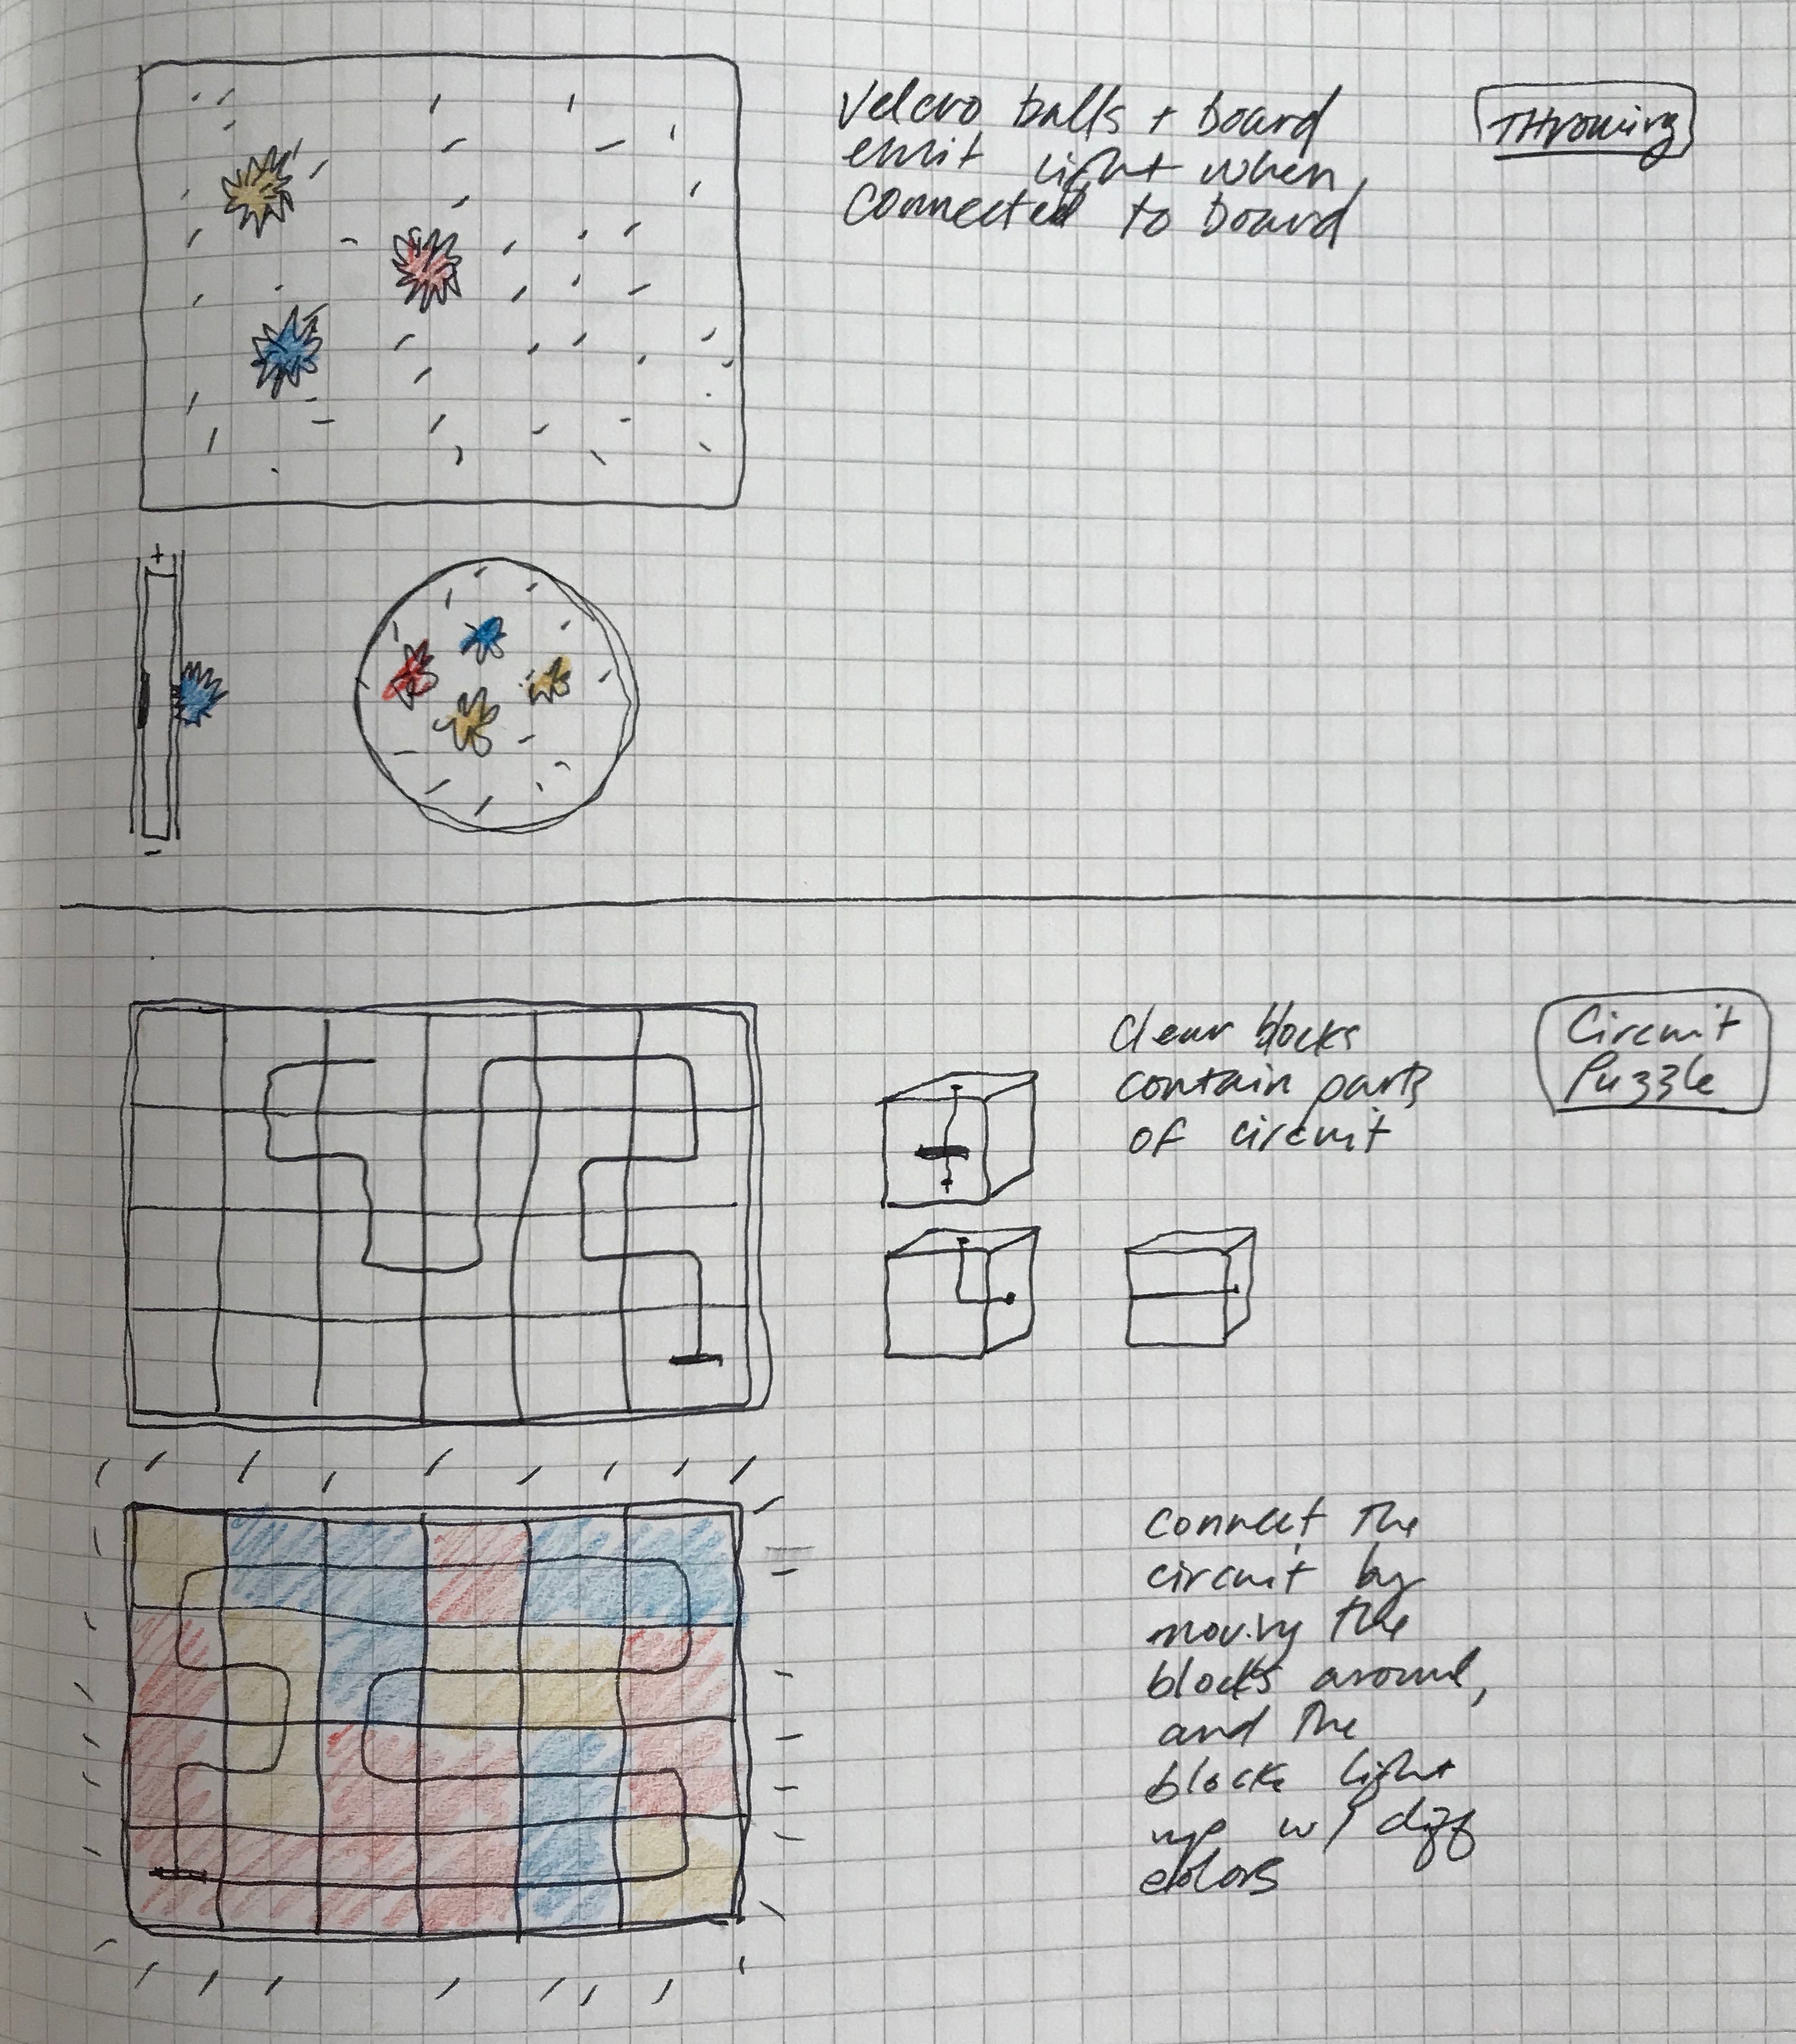 Velcro balls + board
emit light when
connected to board
THrowing
+
-
Clear blocks
contain parts
of circuit
Circuit
Puzzle
connect the
circuit by
moving the
blocks around,
and the
blocks light
up w/ diff
colors